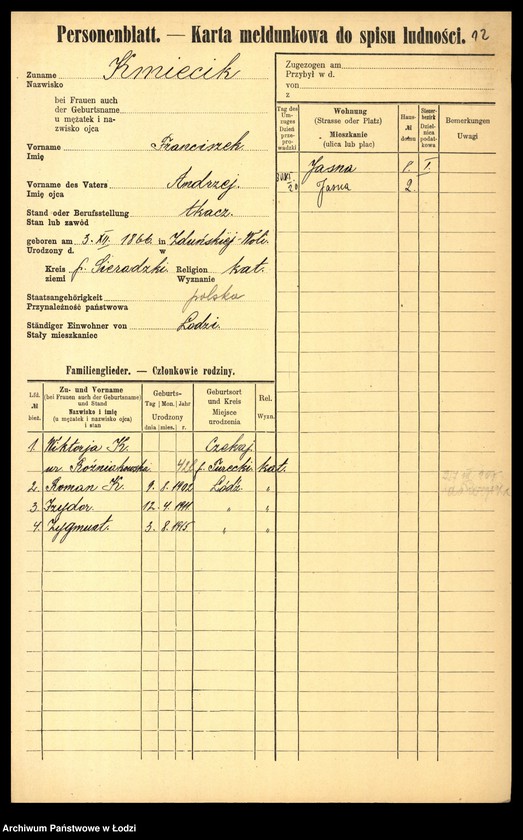 Personenblatt. — Karta meldunkowa do spisu ludności. 12
Zuname Kmiecik
Nazwisko
bei Frauen auch
der Geburtsname
u mężatek i na-
zwisko ojca
Vorname Franciszek
Imię
Vorname des Vaters Andrzej.
Imię ojca
Stand oder Berufsstellung tkacz.
Stan lub zawód
geboren am 3. XII. 1866 in Zduńskiej-Woli
Urodzony d. w
Kreis p. Sieradzki Religion kat.
ziemi Wyznanie
Staatsangehörigkeit polska
Przynależność państwowa
Ständiger Einwohner von Łodzi
Stały mieszkaniec
Zugezogen am
Przybył w d.
von
z
Tag des
Um-
zuges
Dzień
prze-
prowa-
dzki
Wohnung
(Strasse oder Platz)
Mieszkanie
(ulica lub plac)
Haus-
№
domu
Steuer-
bezirk
Dziel-
nica
podat-
kowa
Bemerkungen
Uwagi
Jasna 8. I.
20 Jasna 2.
Familienglieder. — Członkowie rodziny.
Lfd.
№
bież.
Zu- und Vorname
(bei Frauen auch der Geburtsname)
und Stand
Nazwisko i imię
(u mężatek i nazwisko ojca)
i stan
Geburts-
Tag Mon. Jahr
Urodzony
dnia mies. r.
Geburtsort
und Kreis
Miejsce
urodzenia
Rel.
Wyzn.
1. Wiktorja K. Czekaj.
ur. Koźniakowska 42l p. Turecki kat.
2. Roman K. 9. 8. 1902 Łódź "
3. Izydor. 12. 4. 1911 " "
4. Zygmunt. 3. 8. 1915 " "
Archiwum Państwowe w Łodzi